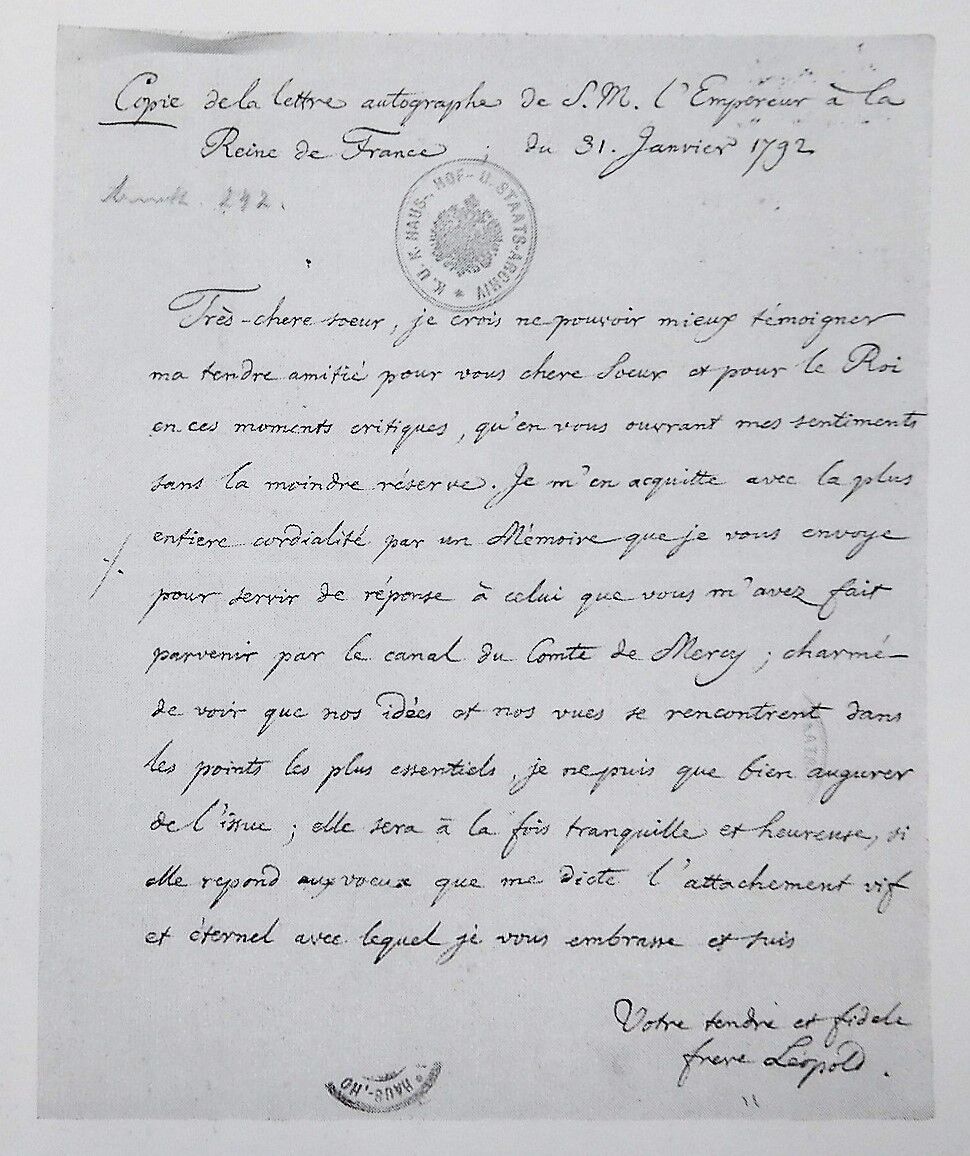 Copie de la lettre autographe de S. M. l'Empereur à la
Reine de France ; du 31. Janvier 1792
242.
K. U. K. HAUS-, HOF- U. STAATS-ARCHIV *
Très-chere soeur, je crois ne pouvoir mieux témoigner
ma tendre amitié pour vous chere Soeur et pour le Roi
en ces moments critiques, qu'en vous ouvrant mes sentiments
sans la moindre réserve. Je m'en acquitte avec la plus
entiere cordialité par un Mémoire que je vous envoye
pour servir de réponse à celui que vous m'avez fait
parvenir par le canal du Comte de Mercy ; charmé
de voir que nos idées et nos vues se rencontrent dans
les points les plus essentiels, je ne puis que bien augurer
de l'issue ; elle sera à la fois tranquille et heureuse, si
elle repond aux voeux que me dicte l'attachement vif
et éternel avec lequel je vous embrasse et suis
Votre tendre et fidele
frere Léopold.
HAUS-, HO